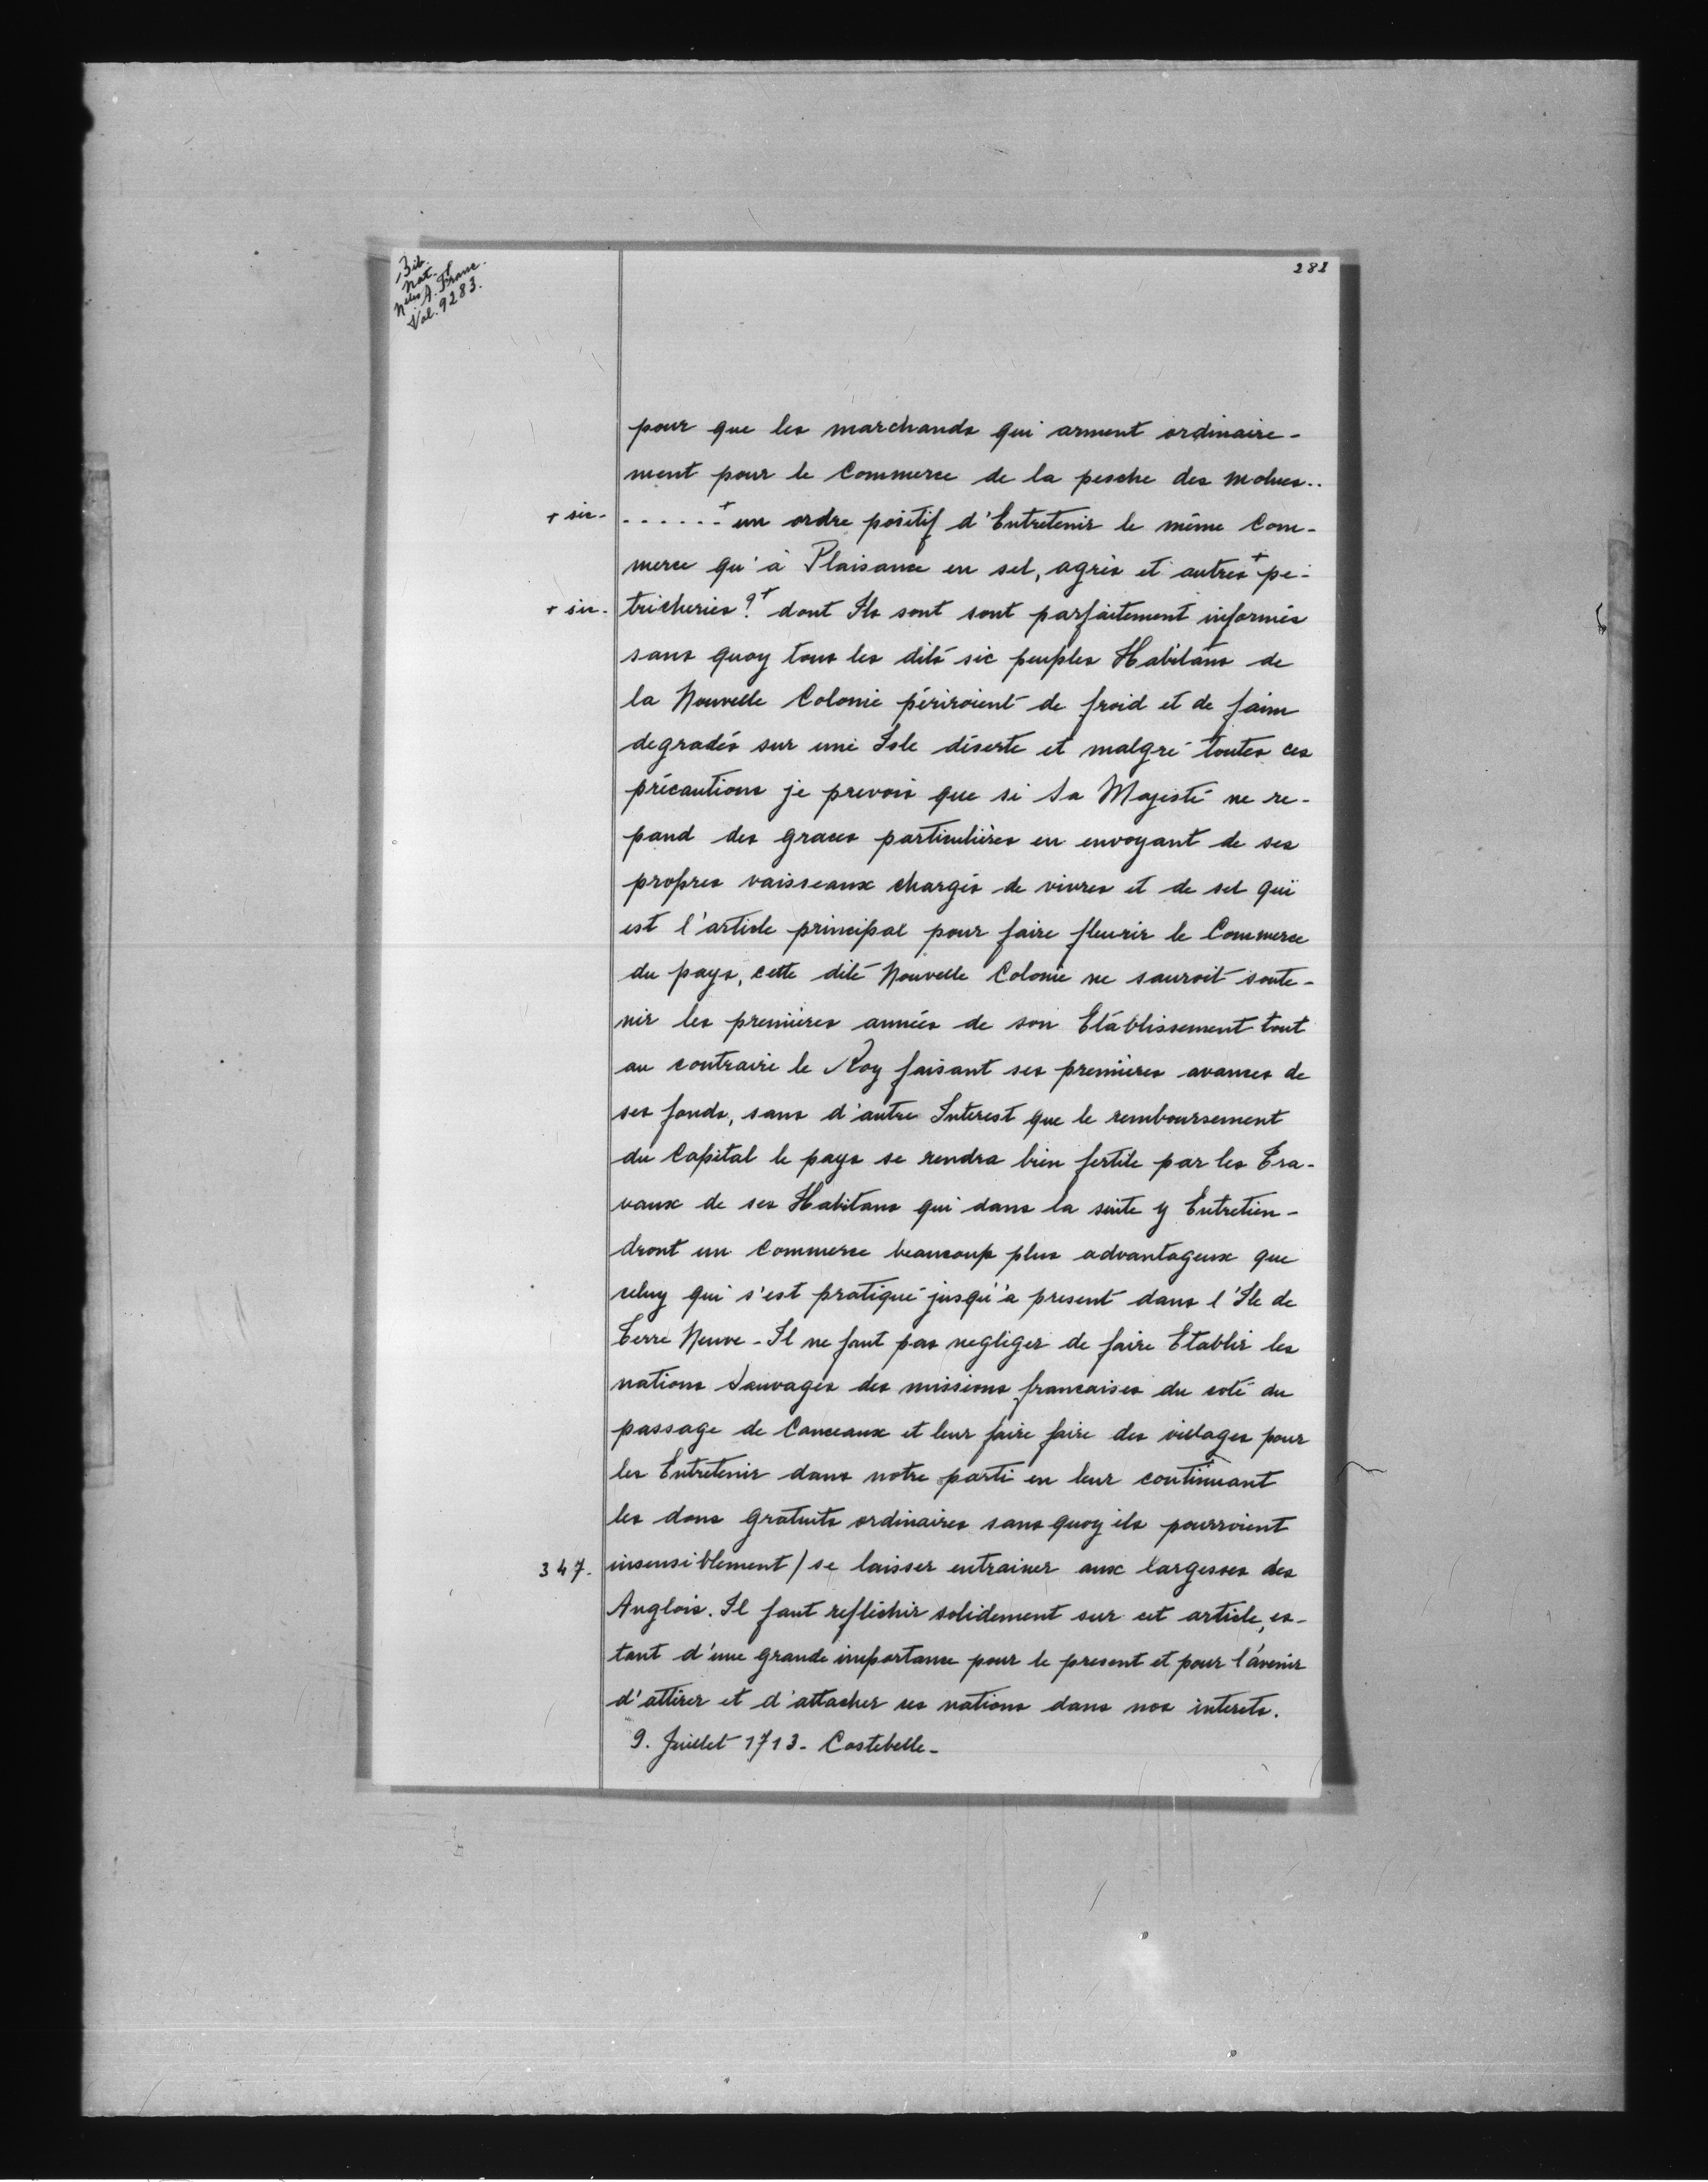 Bib.
Nat.
Nlles A. Franc.
Vol. 9283.
281
pour que les marchands qui arment ordinaire-
ment pour le Commerce de la pesche des molues..
+ sic. ......+ un ordre positif d'Entretenir le même Com-
merce qu'à Plaisance en sel, agrès et autres+ pe-
+ sic. tricheries?+ dont Ils sont sont parfaitement informés
sans quoy tous les dits sic peuples Habitans de
la Nouvelle Colonie périroient de froid et de faim
degradés sur une Isle déserte et malgré toutes ces
précautions je prevois que si Sa Majesté ne re-
pand des graces particulières en envoyant de ses
propres vaisseaux chargés de vivres et de sel qui
est l'article principal pour faire fleurir le Commerce
du pays, cette dite Nouvelle Colonie ne sauroit soute-
nir les premières années de son Etablissement tout
au contraire le Roy faisant ses premières avances de
ses fonds, sans d'autre Interest que le remboursement
du Capital le pays se rendra bien fertile par les Tra-
vaux de ses Habitans qui dans la suite y Entretien-
dront un Commerce beaucoup plus advantageux que
celuy qui s'est pratiqué jusqu'à present dans l'Ile de
Terre Neuve - Il ne faut pas negliger de faire Etablir les
nations Sauvages des missions francaises du coté du
passage de Canceaux et leur faire faire des villages pour
les Entretenir dans notre parti en leur continuant
les dons gratuits ordinaires sans quoy ils pourroient
347. insensiblement / se laisser entrainer aux largesses des
Anglois. Il faut refléchir solidement sur cet article, es-
tant d'une grande importance pour le present et pour l'avenir
d'attirer et d'attacher ces nations dans nos interets.
9. Juillet 1713 - Costebelle -